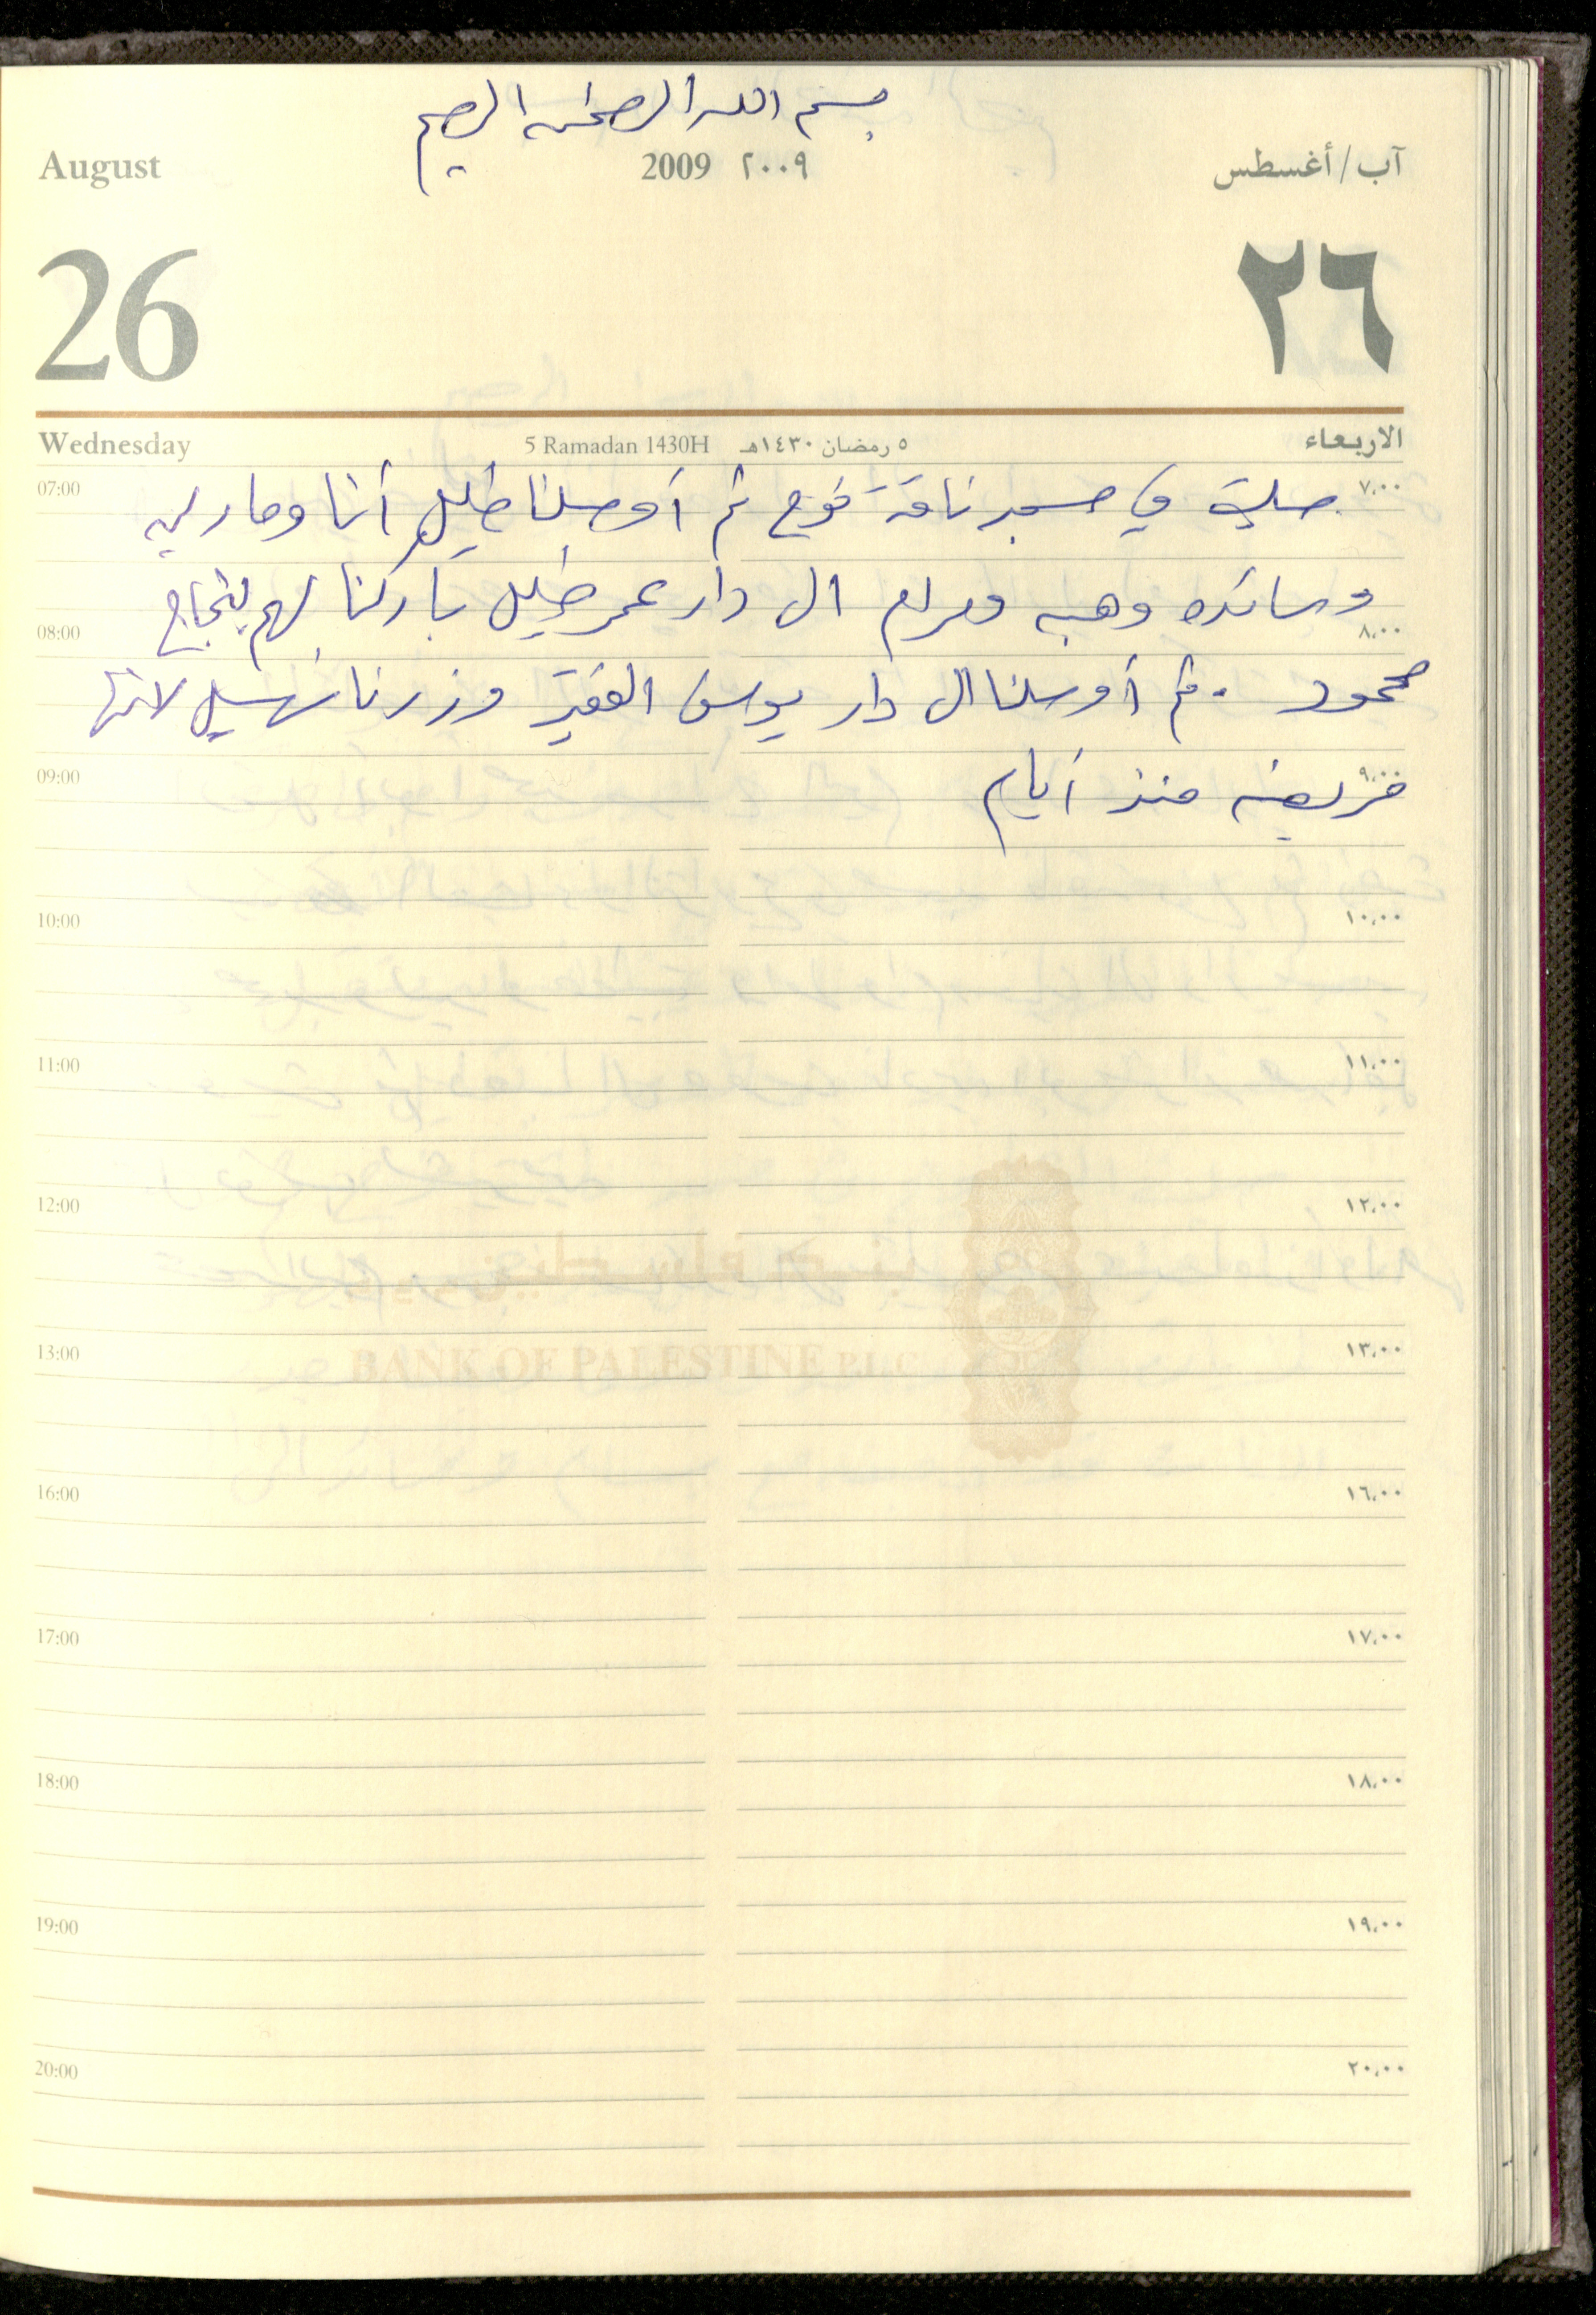 بسم الله الرحمن الرحيم
August 2009 ٢٠٠٩ آب/أغسطس
26 ٢٦
Wednesday 5 Ramadan 1430H ٥ رمضان ١٤٣٠هـ الاربعاء
07:00 ٧،٠٠
صليت في مسجد ناقة نوح ثم أوصلنا خليل أنا وماريه
وسائده وهبه ومرام الى دار عمر خليل باركنا لهم بنجاح
08:00 ٨،٠٠
محمود . ثم أوصلنا الى دار يوسف الفقيه وزرنا سهيل لانها
مريضه منذ أيام
09:00 ٩،٠٠
10:00 ١٠،٠٠
11:00 ١١،٠٠
12:00 ١٢،٠٠
BANK OF PALESTINE P.L.C
13:00 ١٣،٠٠
16:00 ١٦،٠٠
17:00 ١٧،٠٠
18:00 ١٨،٠٠
19:00 ١٩،٠٠
20:00 ٢٠،٠٠